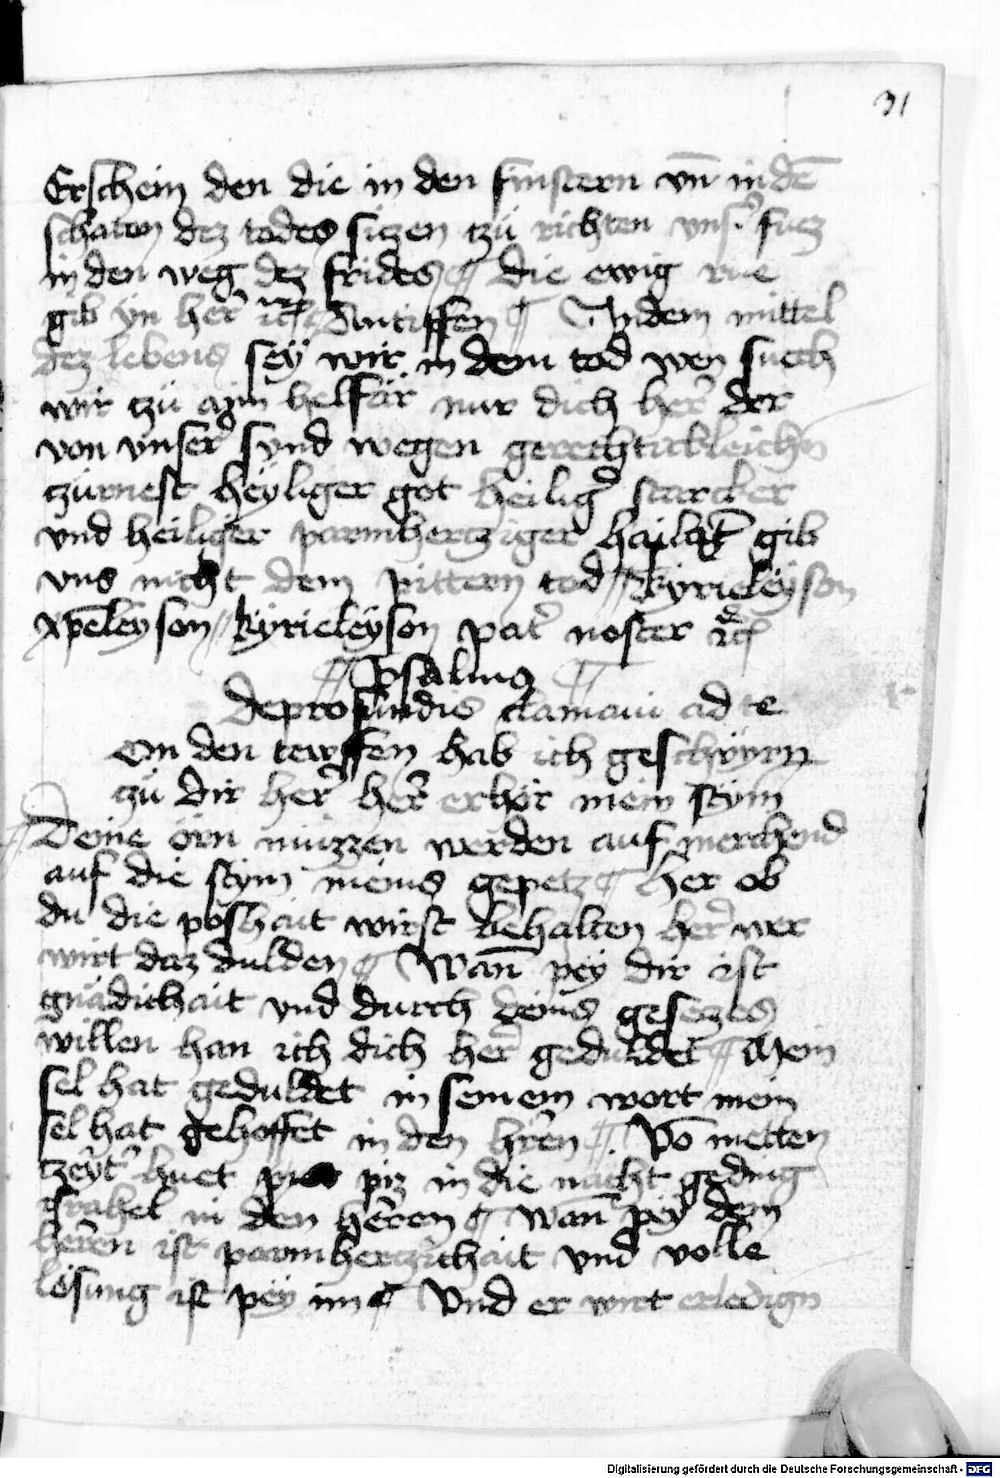 31
Erschein den die in den finstern vn̄ in dē
schaten dez todes siczen tzü richten vnsʼ fuez
in den weg dez frides ¶ die ewig rue
gib yn herʼ ¶ Antiffen ¶ In dem mittel
dez lebens sey wir in dem tod wen such
wir tzü aim helfär nur dich herʼ der
von vnserʼ sünd wegen gerechtickleichn
tzürnest heyliger got heiligʼ starcker
vnd heiliger parmhercziger hailāt gib
vns nicht dem pittern tod kyrieleyson
xpēleyson kyrieleyson patʼ noster
¶ Psalmus
de profundis clamaui ad te
on den tewffen hab ich geschyrn
tzü dir herʼ herʼ erhör mein stym
Deine örn müzzen werden auf merchend
auf die stym meins gepetz ¶ her ob
du die poshait wirst behalten herʼ wer
wirt daz dulden ¶ Wan̄ pey dir ist
gnädichait vnd durch deins geseczes
willen han ich dich herʼ geduldet ¶ Mein
sel hat geduldet in seinem wort mein
sel hat gehoffet in den hʼren ¶ Vō metten
tzeytʼ huet piz in die nacht geding
israhel in den herren ¶ Wan̄ pey dem
herren ist parmherczichait vnd volle
lösung ist pey im ¶ Vnd er wirt erledign
Digitalisierung gefördert durch die Deutsche Forschungsgemeinschaft - DFG